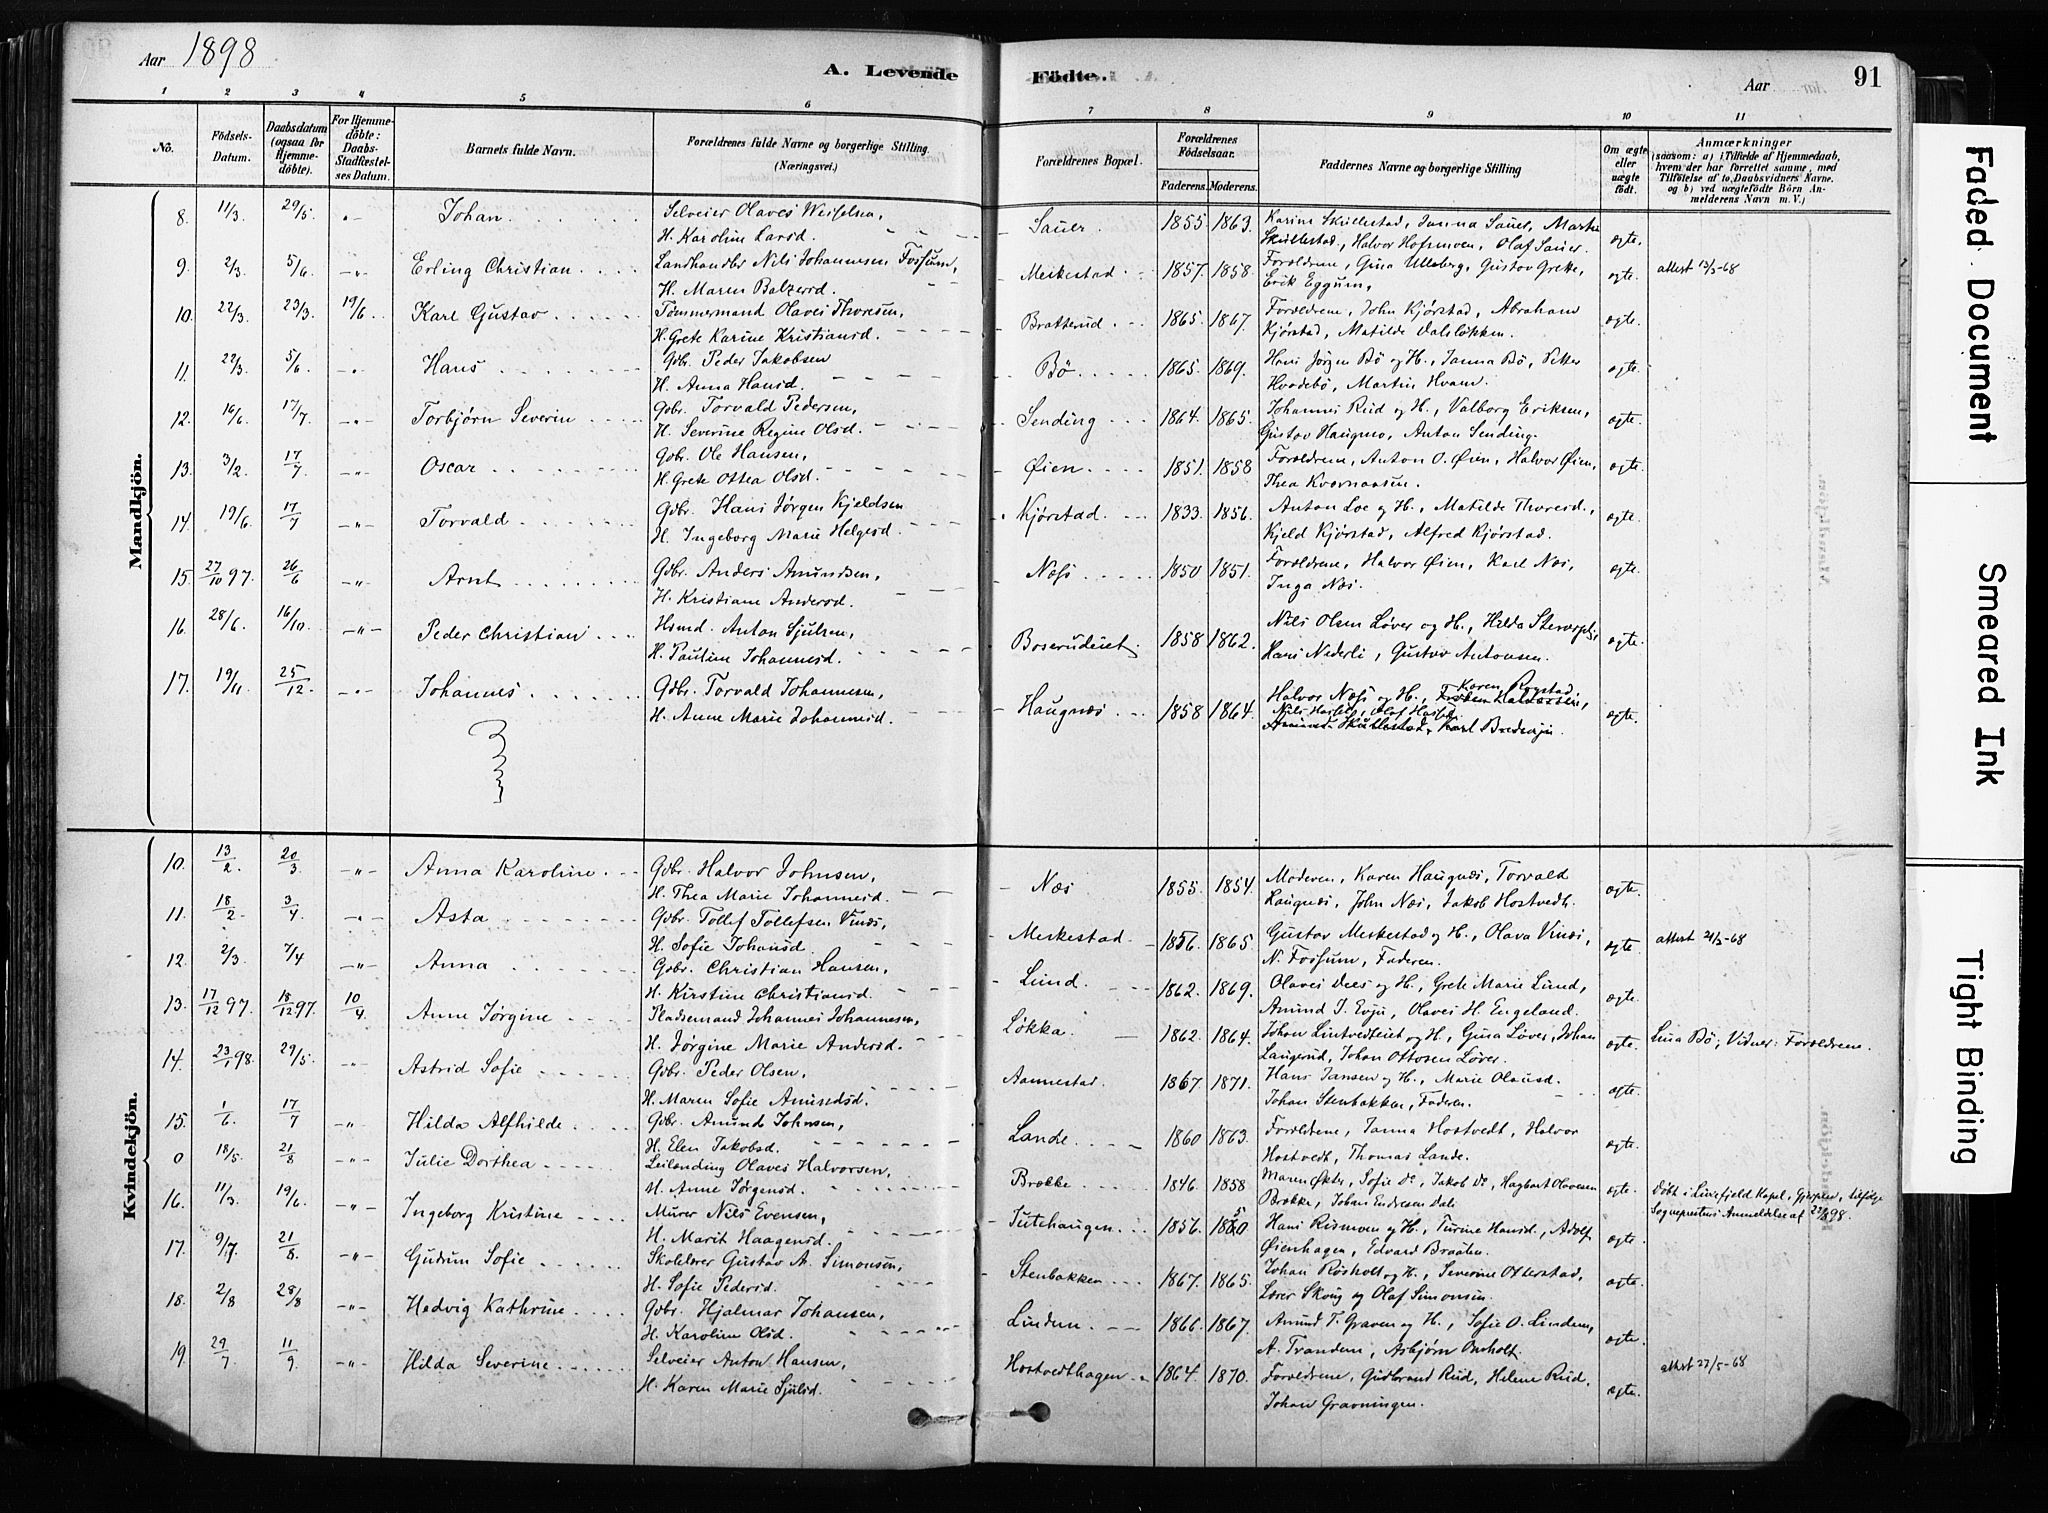 Aar 1898
A. Levende Födte.
Aar 91
1 2 3 4 5 6 7 8 9 10 11
No.
Födsels-Datum.
Daabsdatum (ogsaa for Hjemmedöbte).
For Hjemmedöbte: Daabs-Stadfæstelses Datum.
Barnets fulde Navn.
Forældrenes fulde Navne og borgerlige Stilling (Næringsvei).
Forældrenes Bopæl.
Forældrenes Födselsaar.
Faderens. Moderens.
Faddernes Navne og borgerlige Stilling
Om ægte eller uægte födt.
Anmærkninger
(saasom: a) i Tilfælde af Hjemmedaab,
hvem der har forrettet samme, med
Tilföielse af to Daabsvidners Navne.
og b) ved uægtefödte Börn An-
melderens Navn m. V.)
Mandkjön.
8. 11/3 29/5 -"- Johan. Selveier Olaves Weisselsen, H. Karoline Larsd. Sauer. 1855. 1863. Karine Skullestad, Janna Sauer, Marte Skullestad, Halvor Hofsmoen, Olaf Sauer. ægte.
9. 2/3 5/6 -"- Erling Christian Landhandler Nils Johannesen Fossum, H. Maren Balzersd. Meskestad 1857. 1858. Forældrene, Gina Ulleberg, Gustav Grette, Erik Eggum, ægte. attest 13/5-68
10. 22/3. 23/3. 19/6 Karl Gustav Tømmermand Olaves Thoresen, H. Grete Karine Kristiansd. Bratterud 1865. 1867. Forældrene, John Kjørstad, Abraham Kjørstad, Matilde Dalsløkken. ægte.
11. 22/3. 5/6 -"- Hans Gdbr. Peder Jakobsen H. Anna Hansd. Bø 1865. 1869. Hans Jørgen Bø og H., Janna Bø, Petter Hvadebø, Martin Hvam. ægte.
12. 16/6 17/7 -"- Torbjørn Severin Gdbr. Torvald Pedersen, H. Severine Regine Olsd. Sending 1864. 1865. Johannes Rud og H., Valborg Eriksen, Gustav Haugnæs, Anton Sending. ægte.
13. 3/2 17/7 -"- Oscar Gdbr. Ole Hansen, H. Grete Ottea Olsd. Øien 1851. 1858 Forældrene, Anton O. Øien, Halvor Øien, Thea Kværnaasen. ægte.
14. 19/6. 17/7 -"- Torvald Gdbr. Hans Jørgen Kjeldsen H. Ingeborg Marie Helgesd. Kjørstad 1833. 1856. Anton Loe og H., Matilde Thoresd., Kjeld Kjørstad, Alfred Kjørstad. ægte.
15. 27/10 97. 26/6 -"- Arnt Gdbr. Anders Amundsen, H. Kristiane Andersd. Næss 1850 1851. Forældrene, Halvor Øien, Karl Næs, Inga Næs. ægte.
16. 28/6. 16/10. -"- Peder Christian Hsmd. Anton Sjulsen, H. Pauline Johannesd. Boserudeiet. 1858 1862. Nils Olsen Løver og H., Hilda Hans Nederli, Gustav Antonsen. ægte.
17. 19/11 25/12. -"- Johannes Gdbr. Torvald Johannesen, H. Anne Marie Johannesd. Haugnæs 1858 1864. Halvor Næss og H., Karen Rygstad, ægte.
Kvindekjön.
10. 13/2 20/3 -"- Anna Karoline Gdbr. Halvor Johnsen, H. Thea Marie Johannesd. Næs 1855. 1854. Moderen, Karen Haugnæs, Torvald Haugnæs, John Næs, Jakob Hostvedt. ægte.
11. 18/2 3/4 -"- Asta Gdbr. Tollef Tollefsen Vinæs, H. Sofie Johansd. Meskestad 1856. 1865. Gustav Meskestad og H., Olava Vinæs, N. Fossum, Faderen. ægte. attest 21/5-68
12. 2/3 7/4 -"- Anna Gdbr. Christian Hansen, H. Kirstine Christiansd. Lund 1862. 1869. Olaves Dees og H., Grete Marie Lund, Amund J. Evju, Olaves H. Engeland. ægte.
13. 17/12 97. 18/12 97. 10/4 Anne Jørgine Pladsemand Johannes Johannesen, H. Jørgine Marie Andersd. Løkka 1862. 1864. Johan Lintvedteiet og H., Gina Løver, Johan Langerud, Johan Ottosen Løver. ægte. Lina Bø; Vidner: Forældrene.
14. 23/1 98. 29/5. -"- Astrid Sofie Gdbr. Peder Olsen, H. Maren Sofie Amundsd. Aannestad. 1867 1871. Hans Jansen og H., Marie Olausd. Johan Stenbakken, Faderen. ægte.
15. 1/6. 17/7 -"- Hilda Alfhilde Gdbr. Amund Johnsen, H. Elen Jakobsd. Lande 1860 1863. Forældrene, Janna Hostvedt, Halvor Hostvedt, Thomas Lande. ægte.
0 18/5 21/8 -"- Julie Dorthea Leilænding Olaves Halvorsen, H. Anne Jørgensd. Brække 1846. 1858 Maren Økter, Sofie Do, Jakob Do, Hagbart Olavesen Brække, Johan Endresen Dal. ægte. Døbt i Luxefjeld Kapel, Gjerpen, ifølge Sognepresten's Anmeldelse af 22/8 98.
16. 11/3. 19/6. -"- Ingeborg Kristine Murer Nils Evensen, H. Marit Haagensd. Tutehaugen 1856. 1850 Hans Rismoen og H., Turine Hansd., Adolf Øienhagen, Edvard Braaten. ægte.
17. 9/7. 21/8. -"- Gudrun Sofie Skolelærer Gustav A. Simonsen, H. Sofie Pedersd. Stenbakken 1867. 1865. Johan Røsholt og H., Severine Otterstad, Lærer Skoug og Olaf Simonsen. ægte.
18. 2/8 28/8 -"- Hedvig Kathrine Gdbr. Hjalmar Johansen, H. Karoline Olsd. Linden 1866. 1867. Amund T. Graven og H., Sofie O. Linden, A. Tranden, Asbjørn Omholt. ægte.
19. 29/7 11/9 -"- Hilda Severine Selveier Anton Hansen, H. Karen Marie Sjulsd. Hostvedthagen 1864. 1870. Forældrene, Gudbrand Rud, Helene Rud, Johan Gravningen. ægte. attest 27/5-68
Faded Document
Smeared Ink
Tight Binding